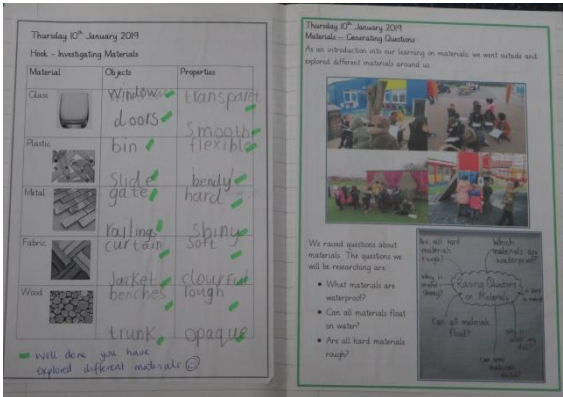 Thursday 10th January 2019
Hook - Investigating Materials
Material Objects Properties
Glass window transparet
doors smooth
Plastic bin flexible
slide bendy
Metal gate hard
railings shiny
Fabric curtain soft
Jacket clourful
Wood benches rough
trunk opaque
Well done you have
explored different materials
Thursday 10th January 2019
Materials - Generating Questions
As an introduction into our learning on materials, we went outside and
explored different materials around us.
We raised questions about
materials. The questions we
will be researching are:
• What materials are
waterproof?
• Can all materials float
on water?
• Are all hard materials
rough?
Are all hard
materials
rough?
Which
materials are
waterproof?
Raising Questions
on Materials
Can all materials
float?